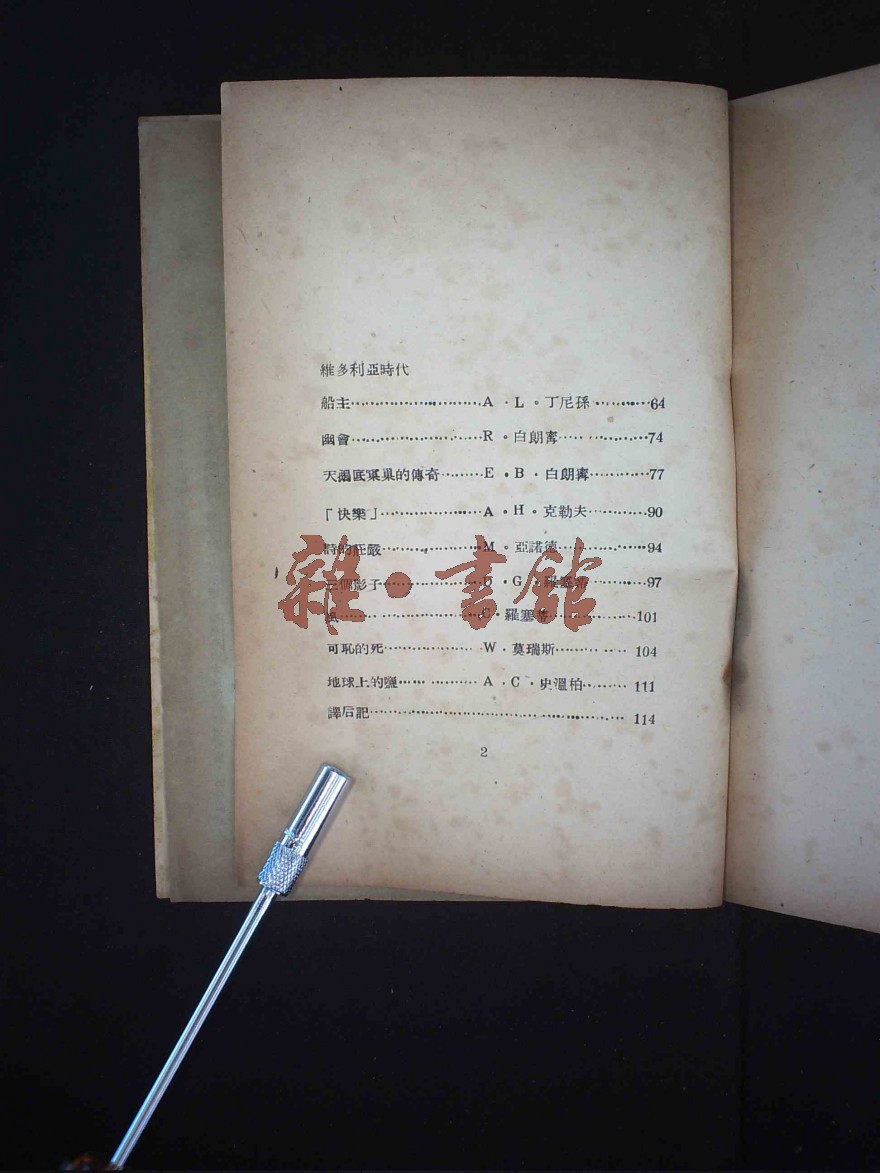 維多利亞時代
船主……………………A·L。丁尼孫………64
幽會…………………R·白朗寗…………74
天鵝底窠巢的傳奇………E·B·白朗寗………77
「快樂」……………A·H·克勒夫………90
詩的莊嚴……………M·亞諾德…………94
三個影子……………D·G·羅塞蒂………97
……………C·羅塞蒂…………101
可恥的死……………W·莫瑞斯…………104
地球上的鹽……………A·C·史溫柏………111
譯后記………………………………114
2
雜·書館